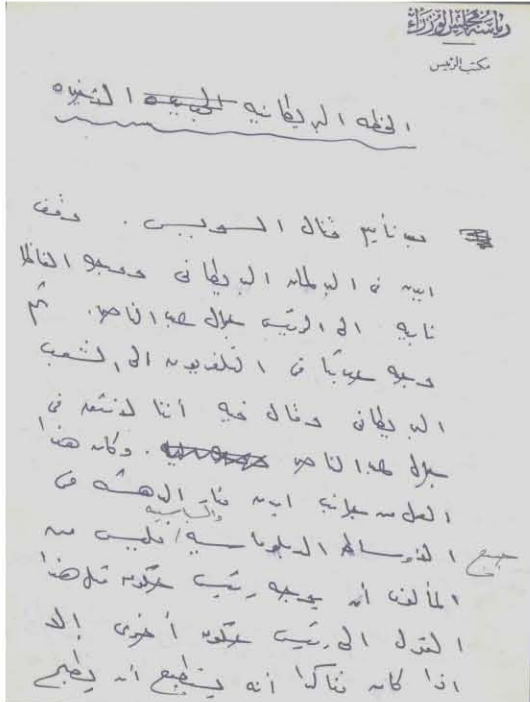 رئاسة مجلس الوزراء
مكتب الرئيس
الخطه البريطانيه الجديده الأخيره
بعد تأميم قنال السويس . وقف
ايدن فى البرلمان البريطانى ووجه الفاظا
نابيه الى الرئيس جمال عبد الناصر. ثم
وجه حديثا فى التلفزيون الى الشعب
البريطانى وقال فيه أننا لا نثق فى
جمال عبد الناصر . وكان هذا
العمل من جانب ايدن مثار الدهشه فى
جميع الأوساط الدبلوماسيه والسياسيه فليس من
المألوف أن يوجه رئيس حكومه مثل هذا
القول الى رئيس حكومه أخرى إلا
اذا كان متأكدا أنه يستطيع أن يطيح